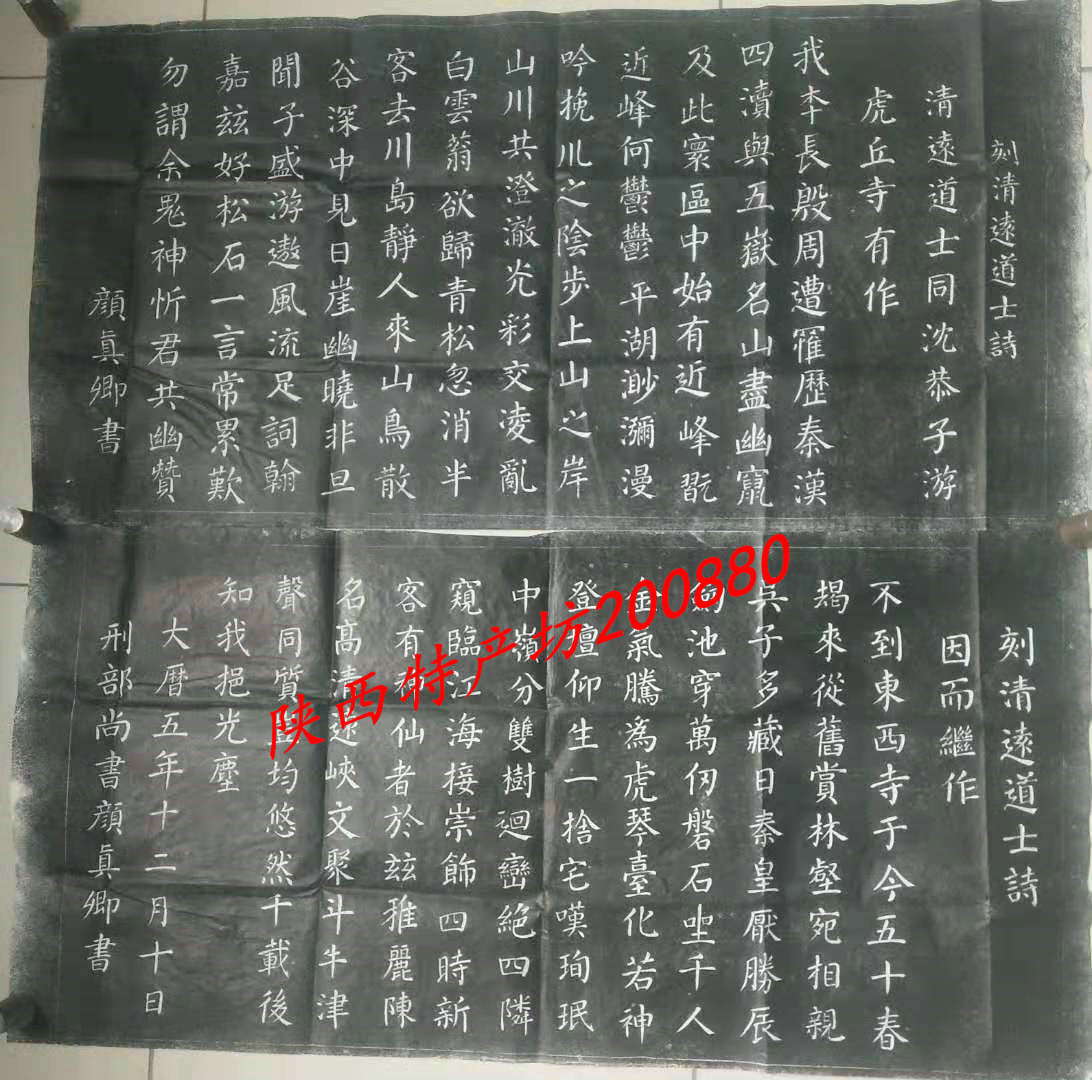 刻清遠道士詩
清遠道士同沈恭子游
虎丘寺有作
我本長殷周遭罹歷秦漢
四瀆與五嶽名山盡幽竄
及此寰區中始有近峰翫
近峰何鬱鬱平湖渺瀰漫
吟挽川之陰步上山之岸
山川共澄澈光彩交凌亂
白雲蓊欲歸青松忽消半
客去川島靜人來山鳥散
谷深中見日崖幽曉非旦
聞子盛游遨風流足詞翰
嘉玆好松石一言常累歎
勿謂余鬼神忻君共幽贊
顏真卿書
刻清遠道士詩
因而繼作
不到東西寺于今五十春
朅來從舊賞林壑宛相親
吳子多藏日秦皇厭勝辰
劍池穿萬仞磐石坐千人
金氣騰為虎琴臺化若神
登壇仰生一捨宅嘆珣珉
中嶺分雙樹迴巒絕四隣
窺臨江海接崇飾四時新
客有神仙者於玆雅麗陳
名高清遠峽文聚斗牛津
聲同質豈均悠然千載後
知我挹光塵
大曆五年十二月十日
刑部尚書顏真卿書
陕西特产坊200880